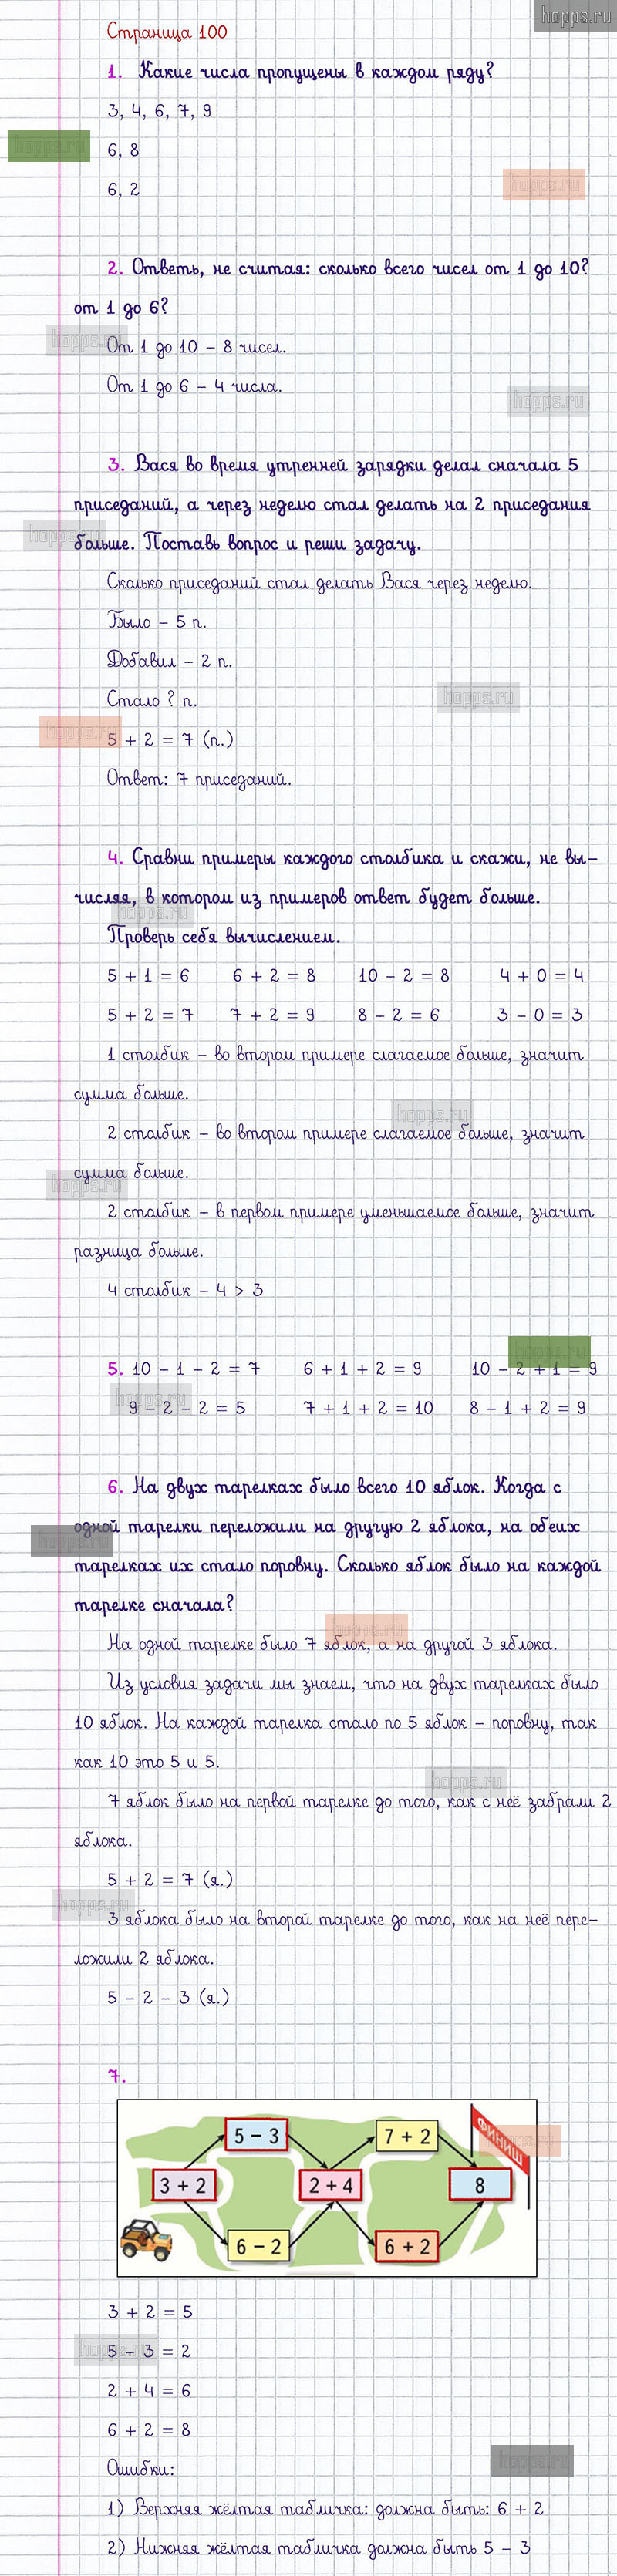 hopps.ru
Страница 100
1. Какие числа пропущены в каждом ряду?
3, 4, 6, 7, 9
hopps.ru
6, 8
hopps.ru
6, 2
2. Ответь, не считая: сколько всего чисел от 1 до 10?
от 1 до 6?
hopps.ru
От 1 до 10 – 8 чисел.
От 1 до 6 – 4 числа.
hopps.ru
3. Вася во время утренней зарядки делал сначала 5
приседаний, а через неделю стал делать на 2 приседания
hopps.ru
больше. Поставь вопрос и реши задачу.
Сколько приседаний стал делать Вася через неделю.
Было – 5 п.
Добавил – 2 п.
Стало ? п.
hopps.ru
hopps.ru
5 + 2 = 7 (п.)
Ответ: 7 приседаний.
4. Сравни примеры каждого столбика и скажи, не вы–
числяя, в котором из примеров ответ будет больше.
hopps.ru
Проверь себя вычислением.
5 + 1 = 6 6 + 2 = 8 10 – 2 = 8 4 + 0 = 4
5 + 2 = 7 7 + 2 = 9 8 – 2 = 6 3 – 0 = 3
1 столбик – во втором примере слагаемое больше, значит
сумма больше.
hopps.ru
2 столбик – во втором примере слагаемое больше, значит
сумма больше.
hopps.ru
2 столбик – в первом примере уменьшаемое больше, значит
разница больше.
4 столбик – 4 > 3
hopps.ru
5. 10 – 1 – 2 = 7 6 + 1 + 2 = 9 10 – 2 + 1 = 9
hopps.ru
9 – 2 – 2 = 5 7 + 1 + 2 = 10 8 – 1 + 2 = 9
6. На двух тарелках было всего 10 яблок. Когда с
одной тарелки переложили на другую 2 яблока, на обеих
hopps.ru
тарелках их стало поровну. Сколько яблок было на каждой
тарелке сначала?
hopps.ru
На одной тарелке было 7 яблок, а на другой 3 яблока.
Из условия задачи мы знаем, что на двух тарелках было
10 яблок. На каждой тарелка стало по 5 яблок – поровну, так
как 10 это 5 и 5.
hopps.ru
7 яблок было на первой тарелке до того, как с неё забрали 2
яблока.
5 + 2 = 7 (я.)
hopps.ru
3 яблока было на второй тарелке до того, как на неё пере–
ложили 2 яблока.
5 – 2 – 3 (я.)
7.
5 − 3 7 + 2 ФИНИШ
hopps.ru
3 + 2 2 + 4 8
6 − 2 6 + 2
3 + 2 = 5
hopps.ru
5 – 3 = 2
2 + 4 = 6
6 + 2 = 8
hopps.ru
Ошибки:
1) Верхняя жёлтая табличка: должна быть: 6 + 2
2) Нижняя жёлтая табличка должна быть 5 – 3